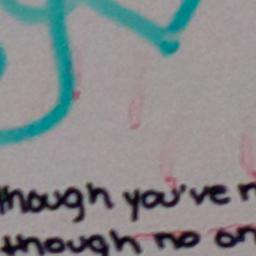 though you've n
though no on